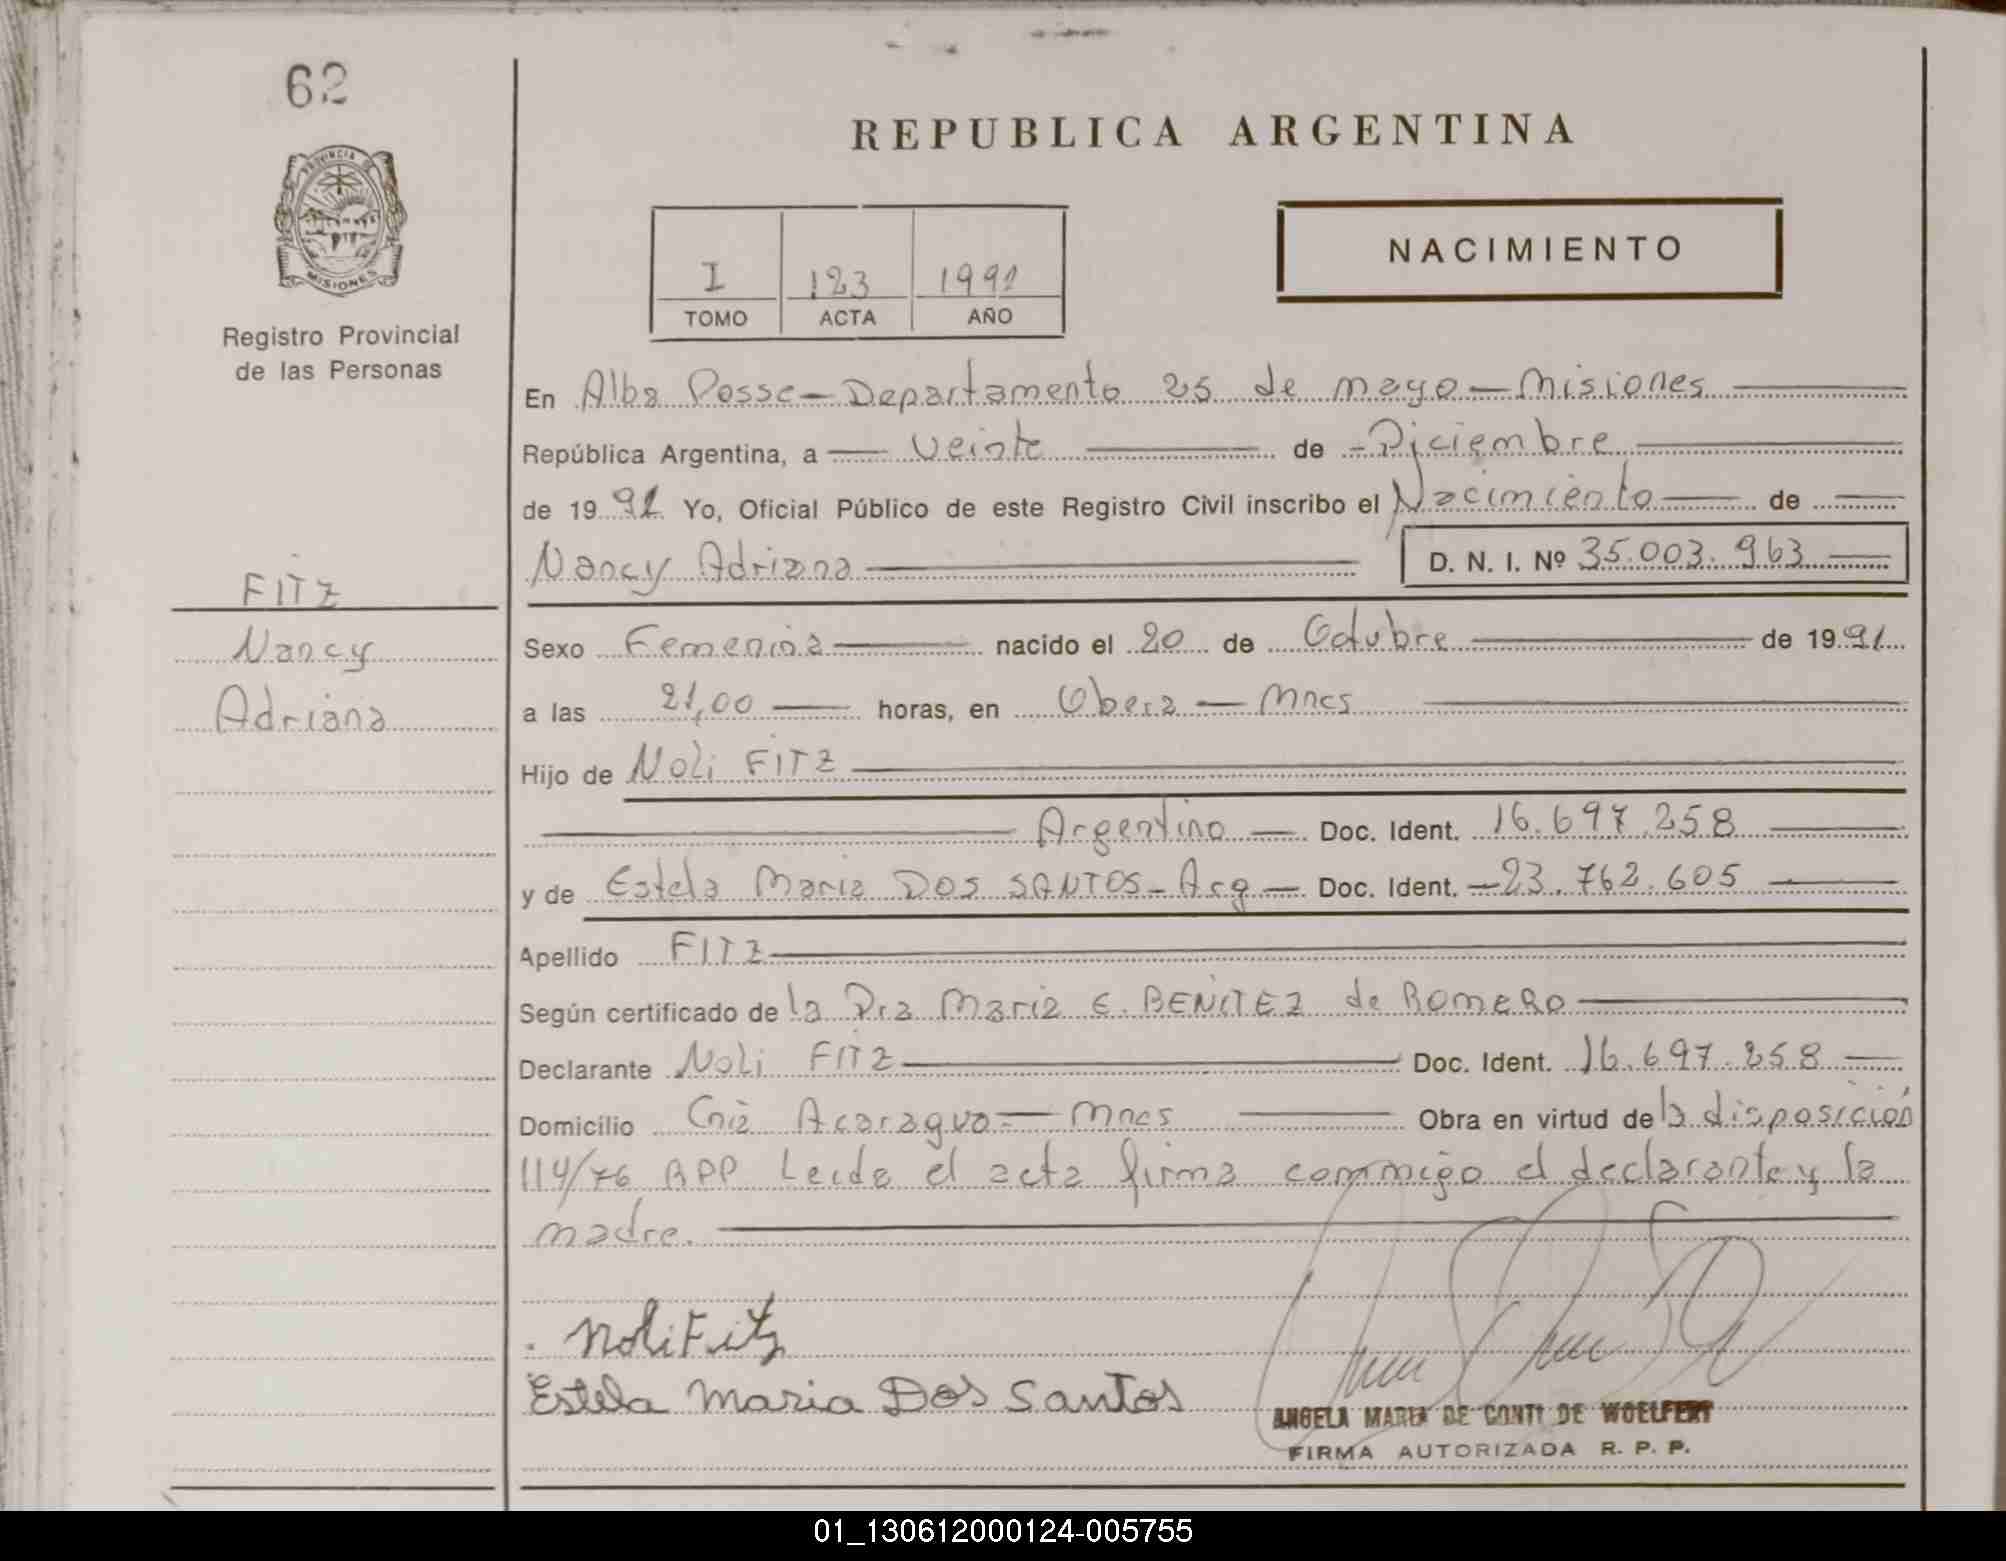 62
PROVINCIA DE
MISIONES
Registro Provincial
de las Personas
FITZ
Nancy
Adriana
REPUBLICA ARGENTINA
I 123 1991
TOMO ACTA AÑO
NACIMIENTO
En Alba Posse - Departamento 25 de mayo - Misiones
República Argentina, a veinte de Diciembre
de 1991 Yo, Oficial Público de este Registro Civil inscribo el Nacimiento de
Nancy Adriana D. N. I. Nº 35.003.963
Sexo Femenina nacido el 20 de Octubre de 1991
a las 21,00 horas, en Obera - Mnes
Hijo de Noli FITZ
Argentino Doc. Ident. 16.697.258
y de Estela Maria DOS SANTOS - Arg - Doc. Ident. 23.762.605
Apellido FITZ
Según certificado de la Dra Maria E. BENITEZ de ROMERO
Declarante Noli FITZ Doc. Ident. 16.697.258
Domicilio Cnia Acaragua = Mnes Obra en virtud de la disposición
114/76 RPP Leida el acta firma conmigo el declarante y la
madre.
Noli Fitz
Estela Maria Dos Santos
ANGELA MARIA DE CONTI DE WOELFERT
FIRMA AUTORIZADA R. P. P.
01_130612000124-005755